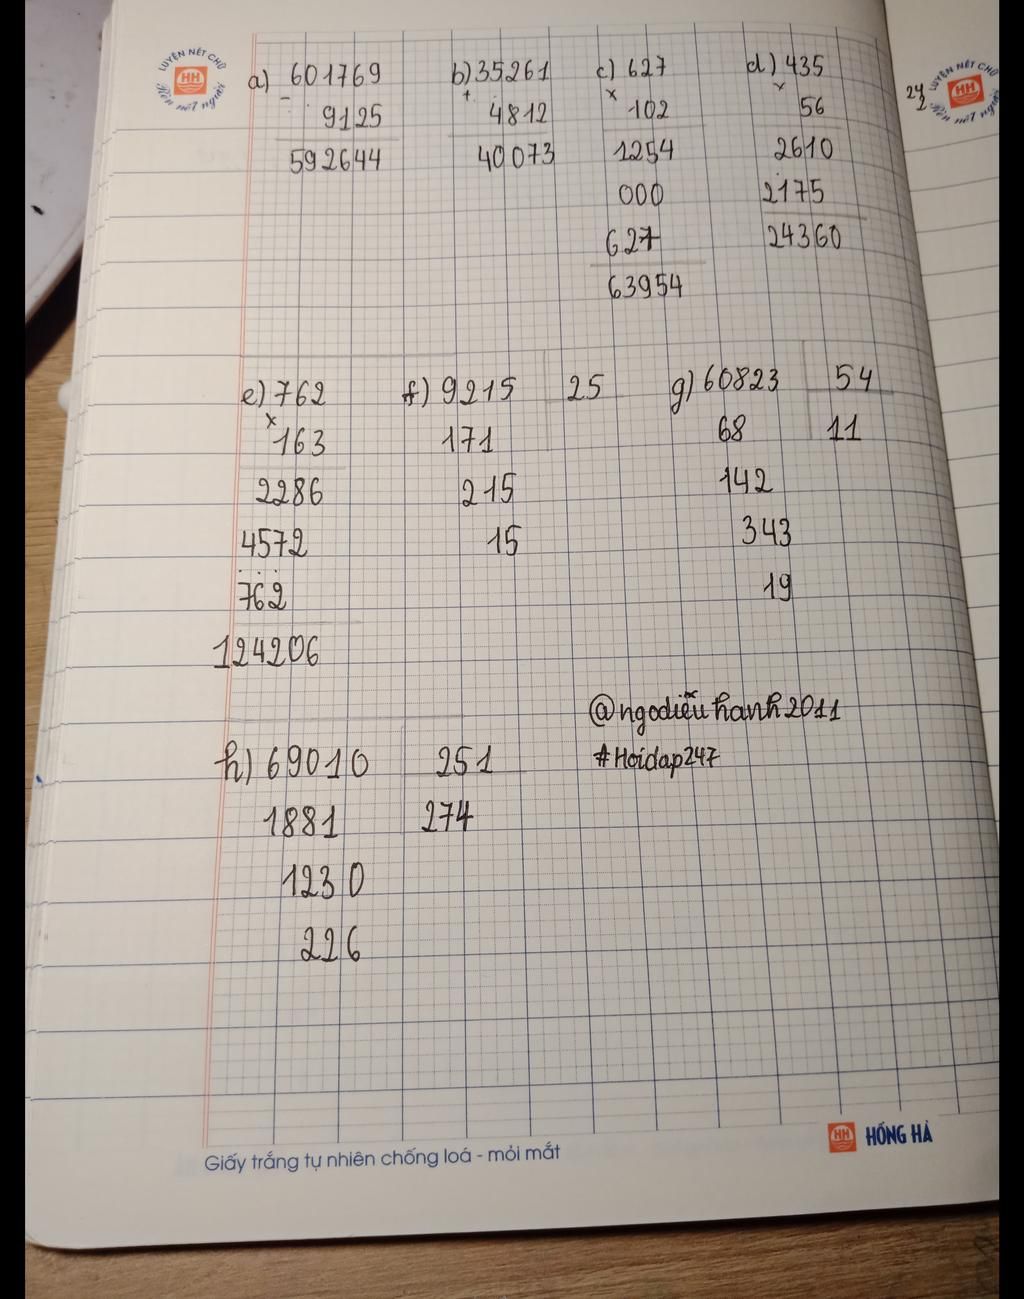 LUYỆN NÉT CHỮ
HH
Rèn nết người
a) 601769 b) 35261 c) 627 d) 435
- 9125 + 4812 x 102 x 56
592644 40073 1254 2610
000 2175
627 24360
63954
LUYỆN NÉT CHỮ
HH
Rèn nết người
e) 762 f) 9215 25 g) 60823 54
x 163 171 68 11
2286 215 142
4572 15 343
762 19
124206
@ngodiễuhanh2011
h) 69010 251 #Hoidap247
1881 274
1230
226
HH HỒNG HÀ
Giấy trắng tự nhiên chống loá - mỏi mắt